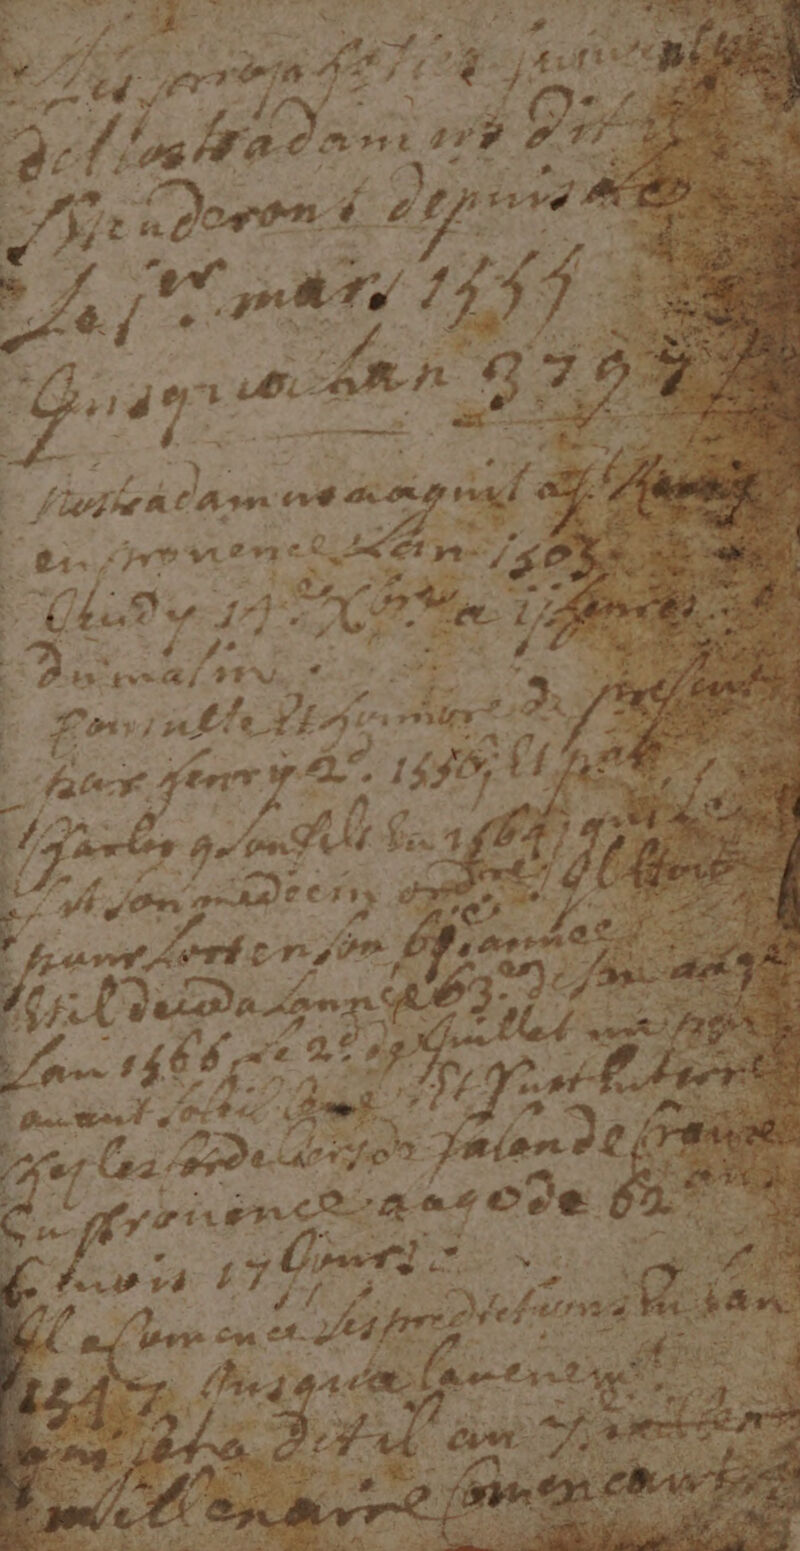 Les propheties suivantes
de Nostradamus dit il
s'Etenderont depuis
Le 1er. mars 1555
Jusqua lan 3797
Nostradamus naquit a St. Remy
en provence Lan 1503
Jeudy 14e. Xbre a 12 heures
du matin.
Consulte Et honnoré de present
par henry 2d. 1556, Et par
Charles 9 son fils En 1564, qui le
fit son medecin ordre. Il Etoit
pour lors en son 61e. année
Et il deceda Lannee 63e. de son aage
Lan 1566 Le 2d. de Juillet un peu
avant soleil levé. Et fut Enterre
chez les Cordeliers de Salon de Craux
En provence aagé de 62 ans
6 mois 17 Jours.
Il a Comencé ses predictions En Lan
1547 Jusqua lavenemt.
qui sera dit il au 7e.
millenaire Comencant